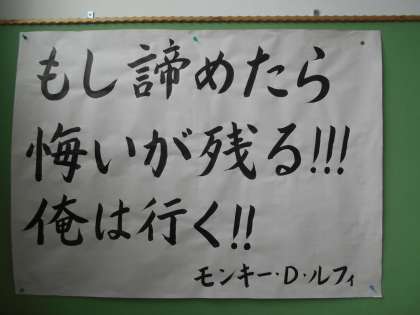 もし諦めたら
悔いが残る!!!
俺は行く!!
モンキー・D・ルフィ